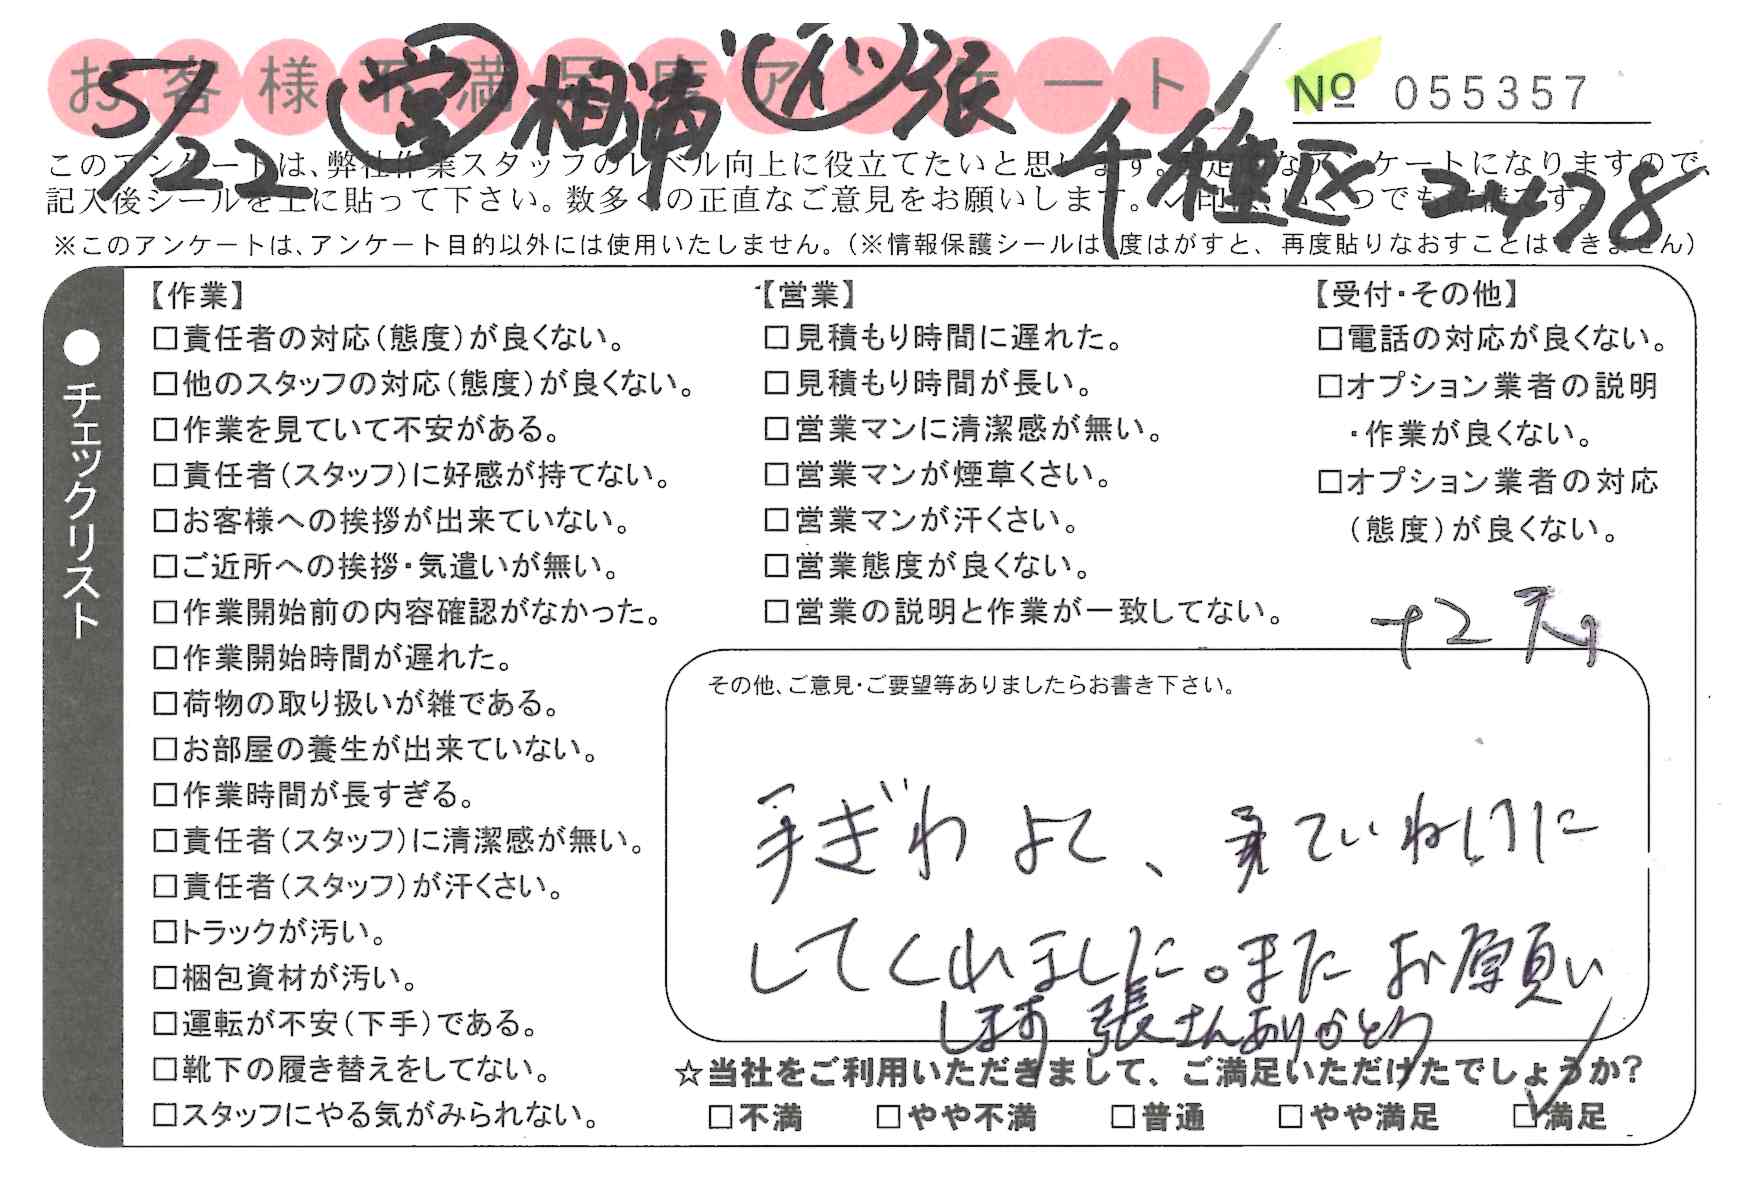 お客様不満足度アンケート
5/22 営 相浦 張
千種区 2478
№ 055357
このアンケートは、弊社作業スタッフのレベル向上に役立てたいと思います。
記入後シールを上に貼って下さい。数多くの正直なご意見をお願いします。
※このアンケートは、アンケート目的以外には使用いたしません。(※情報保護シールは1度はがすと、再度貼りなおすことはできません)
●チェックリスト
【作業】
□責任者の対応(態度)が良くない。
□他のスタッフの対応(態度)が良くない。
□作業を見ていて不安がある。
□責任者(スタッフ)に好感が持てない。
□お客様への挨拶が出来ていない。
□ご近所への挨拶・気遣いが無い。
□作業開始前の内容確認がなかった。
□作業開始時間が遅れた。
□荷物の取り扱いが雑である。
□お部屋の養生が出来ていない。
□作業時間が長すぎる。
□責任者(スタッフ)に清潔感が無い。
□責任者(スタッフ)が汗くさい。
□トラックが汚い。
□梱包資材が汚い。
□運転が不安(下手)である。
□靴下の履き替えをしてない。
□スタッフにやる気がみられない。
【営業】
□見積もり時間に遅れた。
□見積もり時間が長い。
□営業マンに清潔感が無い。
□営業マンが煙草くさい。
□営業マンが汗くさい。
□営業態度が良くない。
□営業の説明と作業が一致してない。
【受付・その他】
□電話の対応が良くない。
□オプション業者の説明
・作業が良くない。
□オプション業者の対応
(態度)が良くない。
その他、ご意見・ご要望等ありましたらお書き下さい。
手ぎわよく、ていねいに
してくれました。またお願い
します 張さんありがとう
☆当社をご利用いただきまして、ご満足いただけたでしょうか?
□不満 □やや不満 □普通 □やや満足 □満足